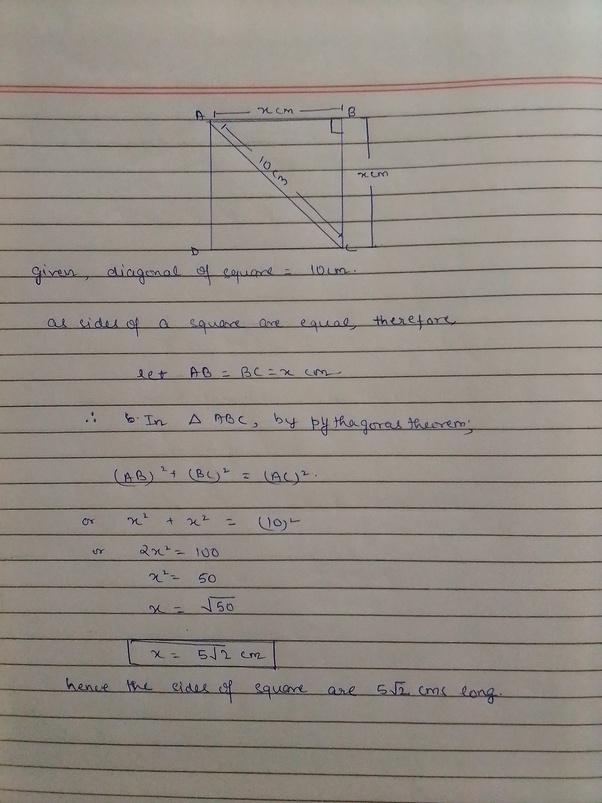 A x cm B
10cm
x cm
D C
Given, diagonal of square = 10cm.
as sides of a square are equal, therefore
let AB = BC = x cm
∴ In △ ABC, by pythagoras theorem;
(AB)² + (BC)² = (AC)².
or x² + x² = (10)²
or 2x² = 100
x² = 50
x = √50
x = 5√2 cm
hence the sides of square are 5√2 cms long.